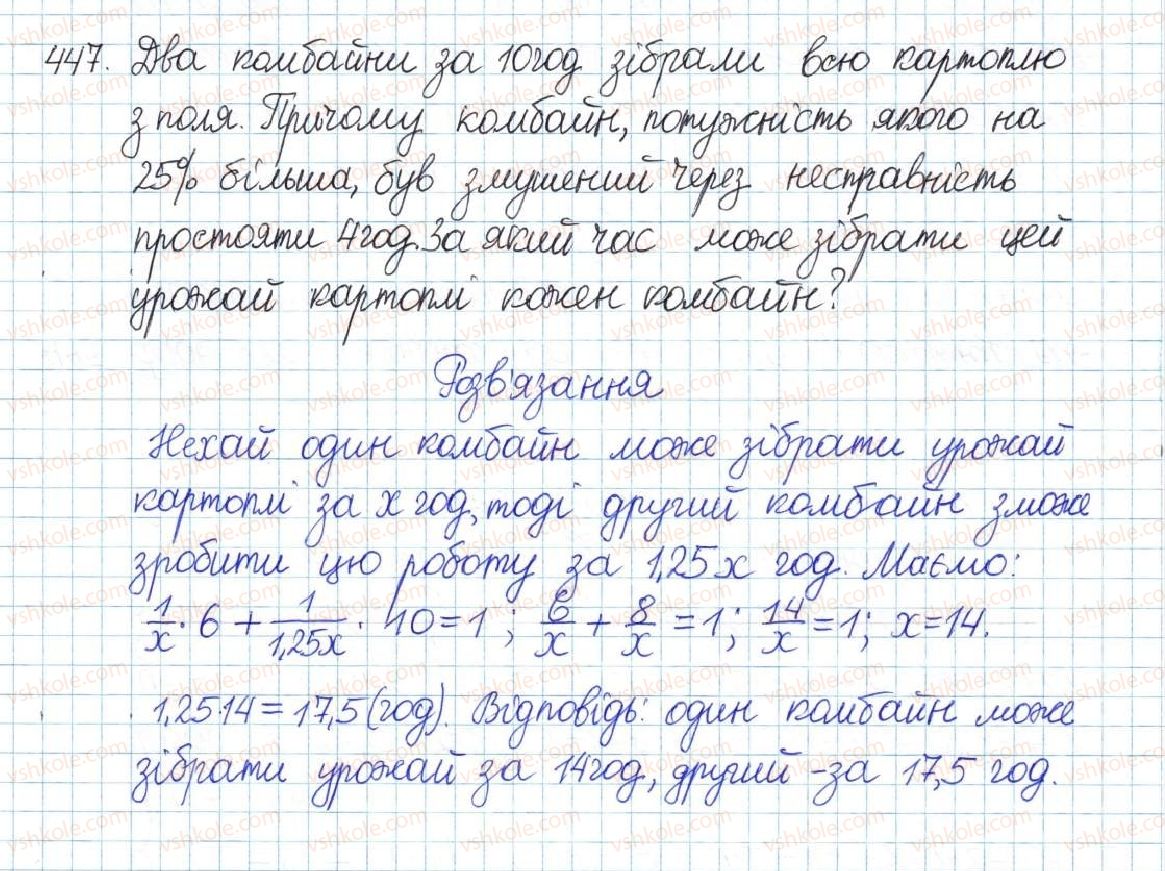 447. Два комбайни за 10 год зібрали всю картоплю
з поля. Причому комбайн, потужність якого на
25% більша, був змушений через несправність
простояти 4 год. За який час може зібрати цей
урожай картоплі кожен комбайн?
Розв'язання
Нехай один комбайн може зібрати урожай
картоплі за x год, тоді другий комбайн зможе
зробити цю роботу за 1,25x год. Маємо:
1/x · 6 + 1/1,25x · 10 = 1; 6/x + 8/x = 1; 14/x = 1; x = 14.
1,25·14 = 17,5 (год). Відповідь: один комбайн може
зібрати урожай за 14 год, другий - за 17,5 год.
vshkole.com